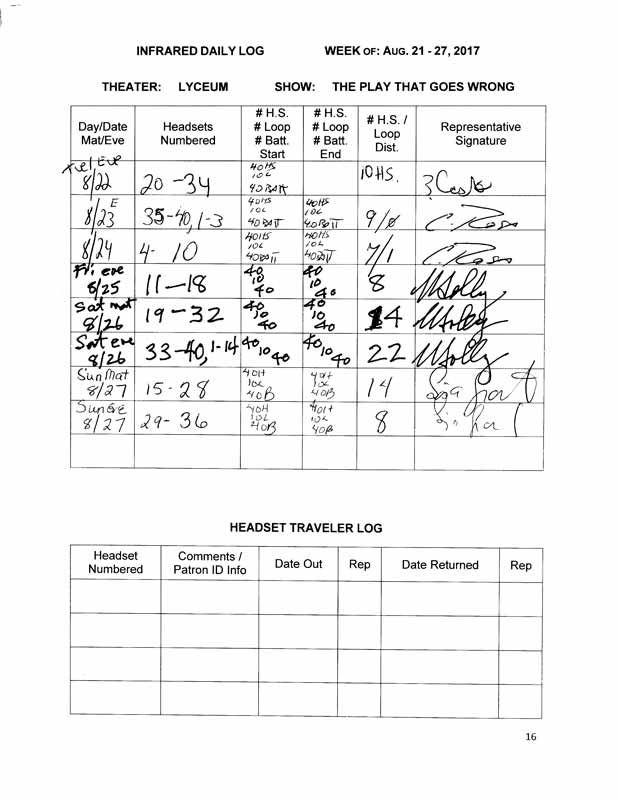 INFRARED DAILY LOG WEEK OF: AUG. 21 - 27, 2017
THEATER: LYCEUM SHOW: THE PLAY THAT GOES WRONG
Day/Date Mat/Eve Headsets Numbered # H.S. # Loop # Batt. Start # H.S. # Loop # Batt. End # H.S. / Loop Dist. Representative Signature
Tue/Eve 8/22 20 - 34 40HS 10L 40BATT 10HS.
E 8/23 35-40, 1-3 40HS 10L 40BATT 40HS 10L 40BATT 9/0 C. Ross
8/24 4- 10 40HS 10L 40BATT 40HS 10L 40BATT 7/1 C. Ross
Fri. eve 8/25 11-18 40 10 40 40 10 40 8
Sat mat 8/26 19-32 40 10 40 40 10 40 14
Sat eve 8/26 33-40, 1-14 40 10 40 40 10 40 22
Sun Mat 8/27 15-28 40H 10L 40B 40H 10L 40B 14
Sun Eve 8/27 29-36 40H 10L 40B 40H 10L 40B 8
HEADSET TRAVELER LOG
Headset Numbered Comments / Patron ID Info Date Out Rep Date Returned Rep
16